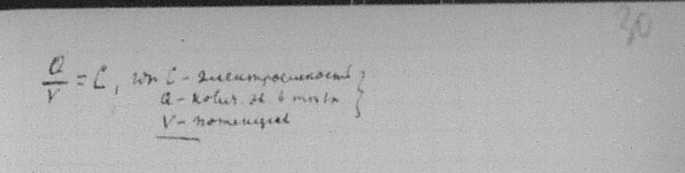 30
Q/V = C, где C - электроемкость
Q - колич. эл. в
V - потенциал